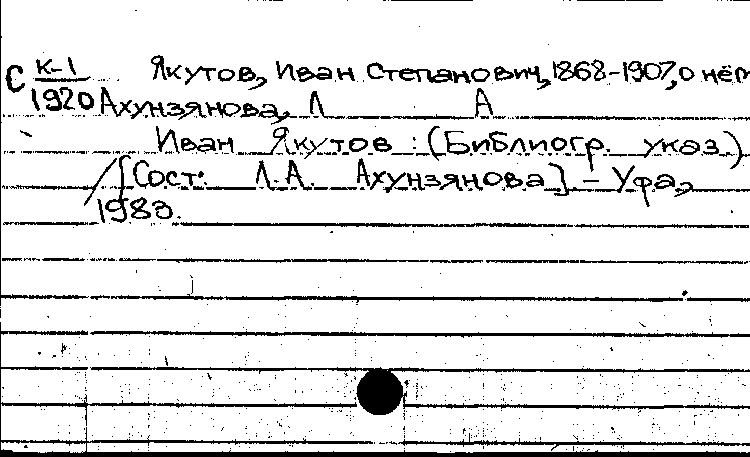 С К-1 Якутов, Иван Степанович, 1868-1907, о нём
1920 Ахунзянова, Л А
Иван Якутов : (Библиогр. указ.)
/ [Сост. Л.А. Ахунзянова] – Уфа,
1980.